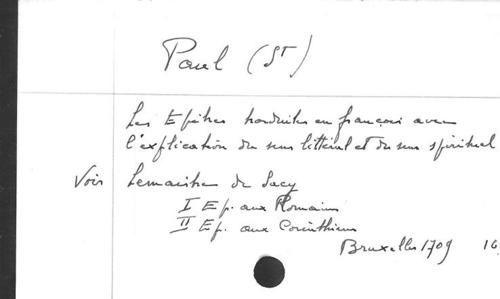 Paul (St)
Les Epîtres traduites en français avec
l'explication du sens littéral et du sens spirituel
Voir Lemaistre de Sacy
I Ep. aux Romains
II Ep. aux Corinthiens
Bruxelles 1709 16